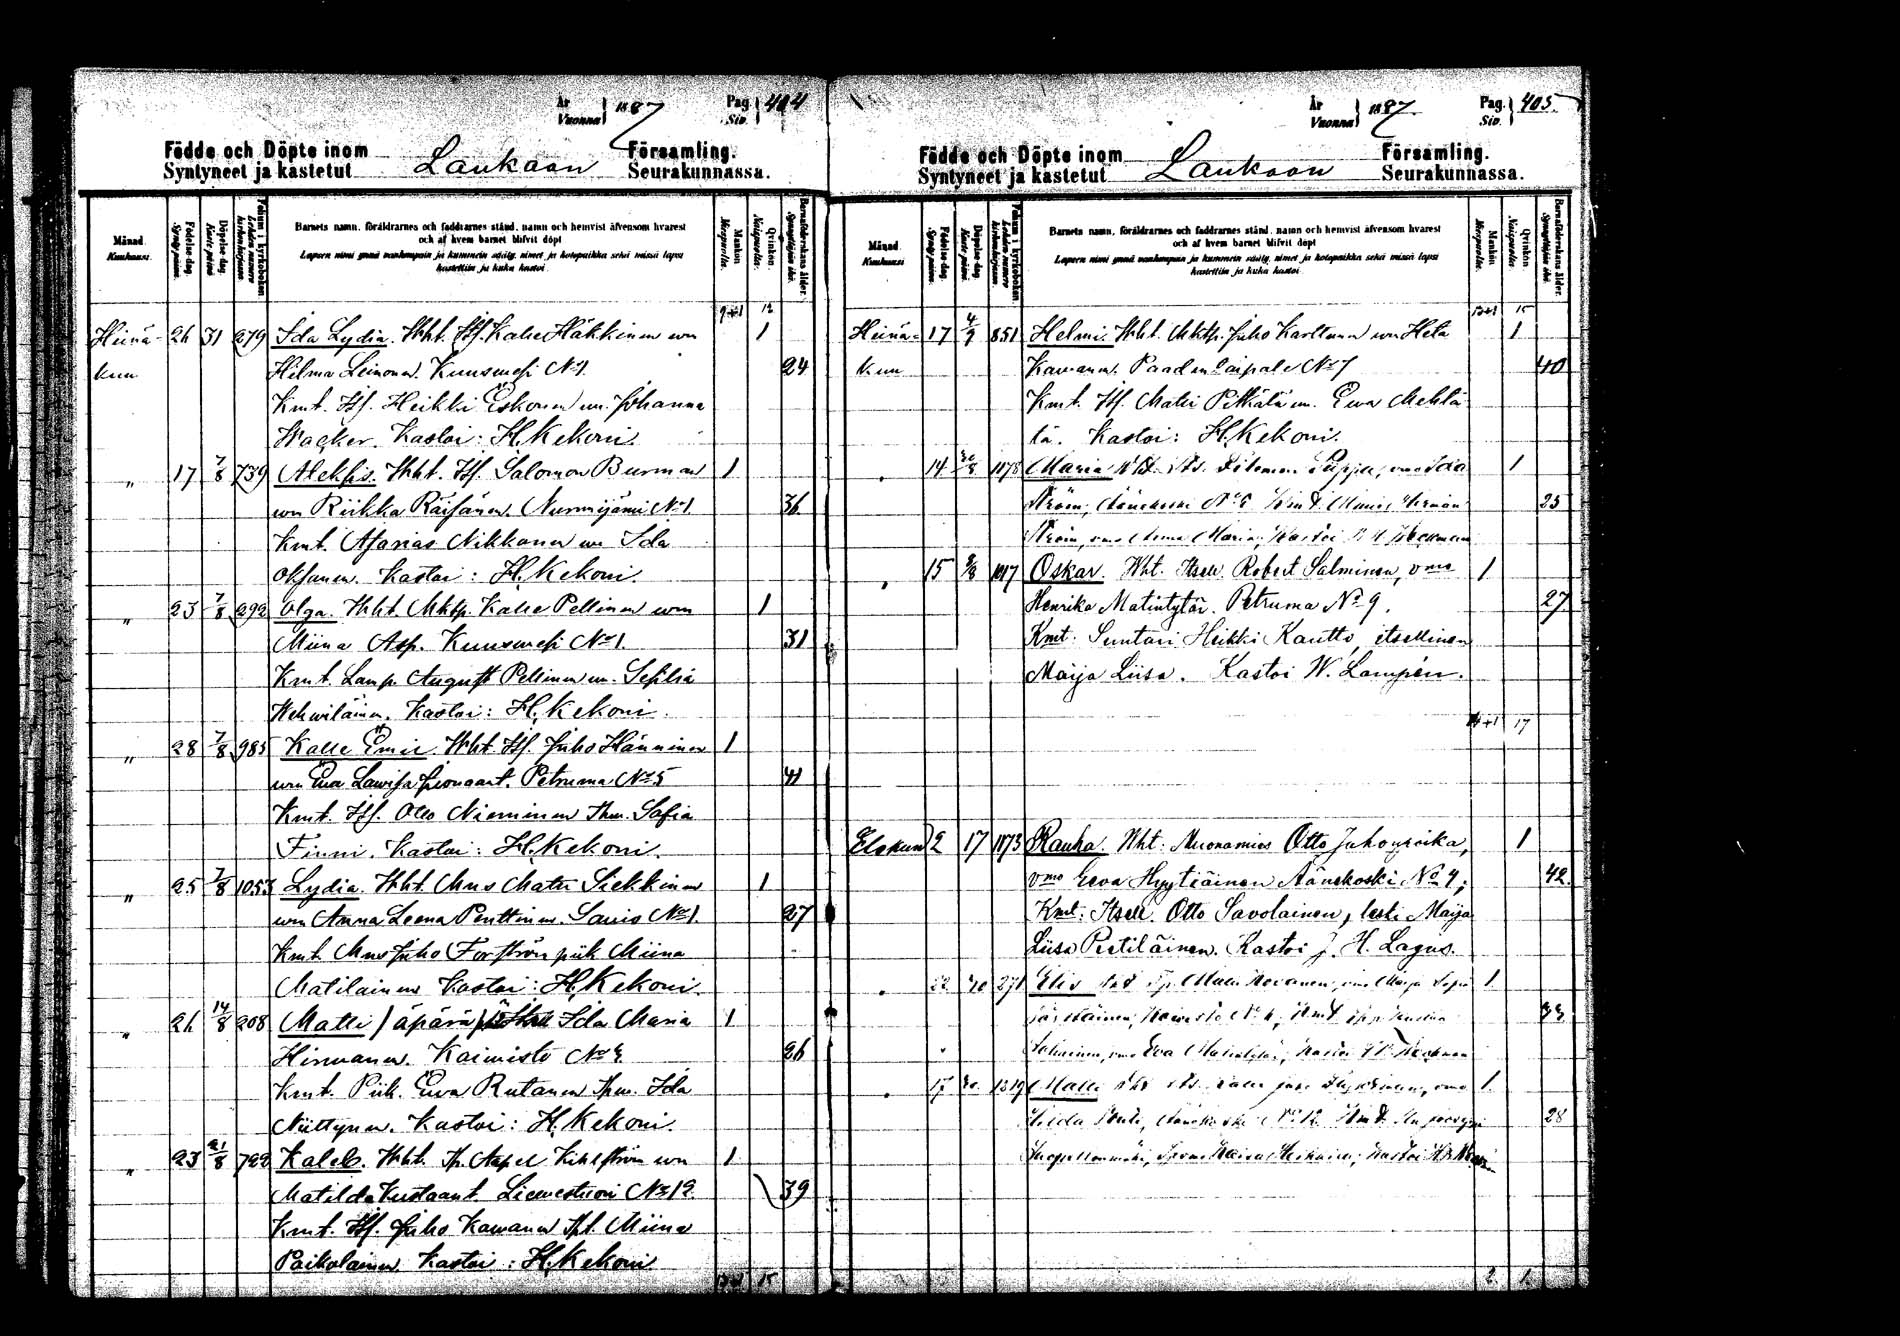 År Vuonna } 1887 Pag. Siv. } 404
Födde och Döpte inom Laukaan Församling.
Syntyneet ja kastetut Seurakunnassa.
Månad. Kuukausi.
Födelse-dag. Synty päivä.
Döpelse-dag. Kaste päivä
Folium i kyrkoboken Lehden numero kirkonkirjassa.
Barnets namn, föräldrarnes och faddrarnes stånd, namn och hemvist äfvensom hvarest
och af hvem barnet blifvit döpt
Lapsen nimi ynnä vanhempain ja kummein sääty, nimet ja kotopaikka sekä missä lapsi
kastettiin ja kuka kastoi.
Mankön Miespuolta.
Qvinkön. Naispuolta.
Barnaföderskans ålder. Synnyttäjän ikä.
9+1 12
Heinä- 26 31 279 Ida Lydia. Wht. Itf. Kalle Häkkinen wm 1
kuu Hilma Leinonen. Kuusmesi No 1. 24
Kmt. Itf. Heikki Eskonen un. Johanna
Wacker. Kastoi: H. Kekoni.
" 17 7/8 739 Aleksis. Wht. Itf. Salomon Burman 1
wm Riikka Räisänen. Nurmijärvi No 1. 36
Kmt. Asarias Nikkonen un Ida
Oksanen. Kastoi: H. Kekoni
" 23 7/8 292 Olga. Wht. Mktp. Kalle Pellinen wm 1
Miina Asp. Kuusmesi No 1. 31
Kmt. Lamp. August Pellinen un. Sesilia
Wehwiläinen. Kastoi: H. Kekoni.
" 28 7/8 985 Kalle Emil. Wht. Itf. Juho Hänninen 1
wm Ewa Lawisa Jeonaant. Petruma No 5 41
Kmt. Itf. Otto Nieminen Thm. Sofia
Finni. Kastoi: H. Kekoni.
" 25 7/8 1053 Lydia. Wht. Mns Matti Siekkinen 1
wm Anna Leena Penttinen. Sauio No 1. 27
Kmt. Mns Juho Forström piik Miina
Matilainen Kastoi: H. Kekoni.
" 26 14/8 208 Matti / äpärä / Ida Maria 1
Hirmanen. Kaimisto No 2 26
Kmt. Piik. Ewa Rutanen Thm. Ida
Niittynen. Kastoi: H. Kekoni.
" 23 21/8 722 Kaleb. Wht. Tp. Aapel Kihlström wm 1
Matilda Kustaant. Liewestuori No 12 39
Kmt. Itf. Juho Kawanen Tpl. Miina
Paikolainen. Kastoi: H. Kekoni
13+1 15
År Vuonna } 1887. Pag. Siv. } 405
Födde och Döpte inom Laukaan Församling.
Syntyneet ja kastetut Seurakunnassa.
Månad. Kuukausi
Födelse-dag. Synty päivä.
Döpelse-dag. Kaste päivä
Folium i kyrkoboken. Lehden numero kirkonkirjassa.
Barnets namn, föräldrarnes och faddrarnes stånd, namn och hemvist äfvensom hvarest
och af hvem barnet blifvit döpt
Lapsen nimi ynnä vanhempain ja kummein sääty, nimet ja kotopaikka sekä missä lapsi
kastettiin ja kuka kastoi.
Mankön Miespuolta.
Qvinkön. Naispuolta.
Barnaföderskans ålder. Synnyttäjän ikä.
13+1 15
Heinä- 17 4/9 851 Helmi. Wht. Mktp. Juho Karttunen wm Heta 1
kuu Kawanen. Paadentaipale No 7 40
Kmt. Itf. Matti Pitkälä un. Ewa Mehtä-
lä. Kastoi: H. Kekoni.
14 1078 Maria Ida 1
Ström, Äänekoski 25
Ström, vmo Anna Maria, Kastoi
15 1017 Oskar. Wht. Itsell. Robert Salminen, vmo 1
Henrika Matintytär. Petruma No 9. 27
Kmt: Suntari Heikki Kautto, itsellinen
Maija Liisa. Kastoi W. Lampén.
14+1 17
Elokuu 2 17 1173 Rauha. Wht: Muonamies Otto Juhonpoika, 1
vmo Eeva Hyytiäinen Äänekoski No 4; 42.
Kmt: Itsell. Otto Savolainen, leski Maija
Liisa Pertiläinen. Kastoi J. H. Lagus.
22 271 Elis Matti Maija 1
33
vmo Eva Kastoi
17 1219 Matti 1
Hilda Äänekoski No 12 28
Kastoi
2. 1.